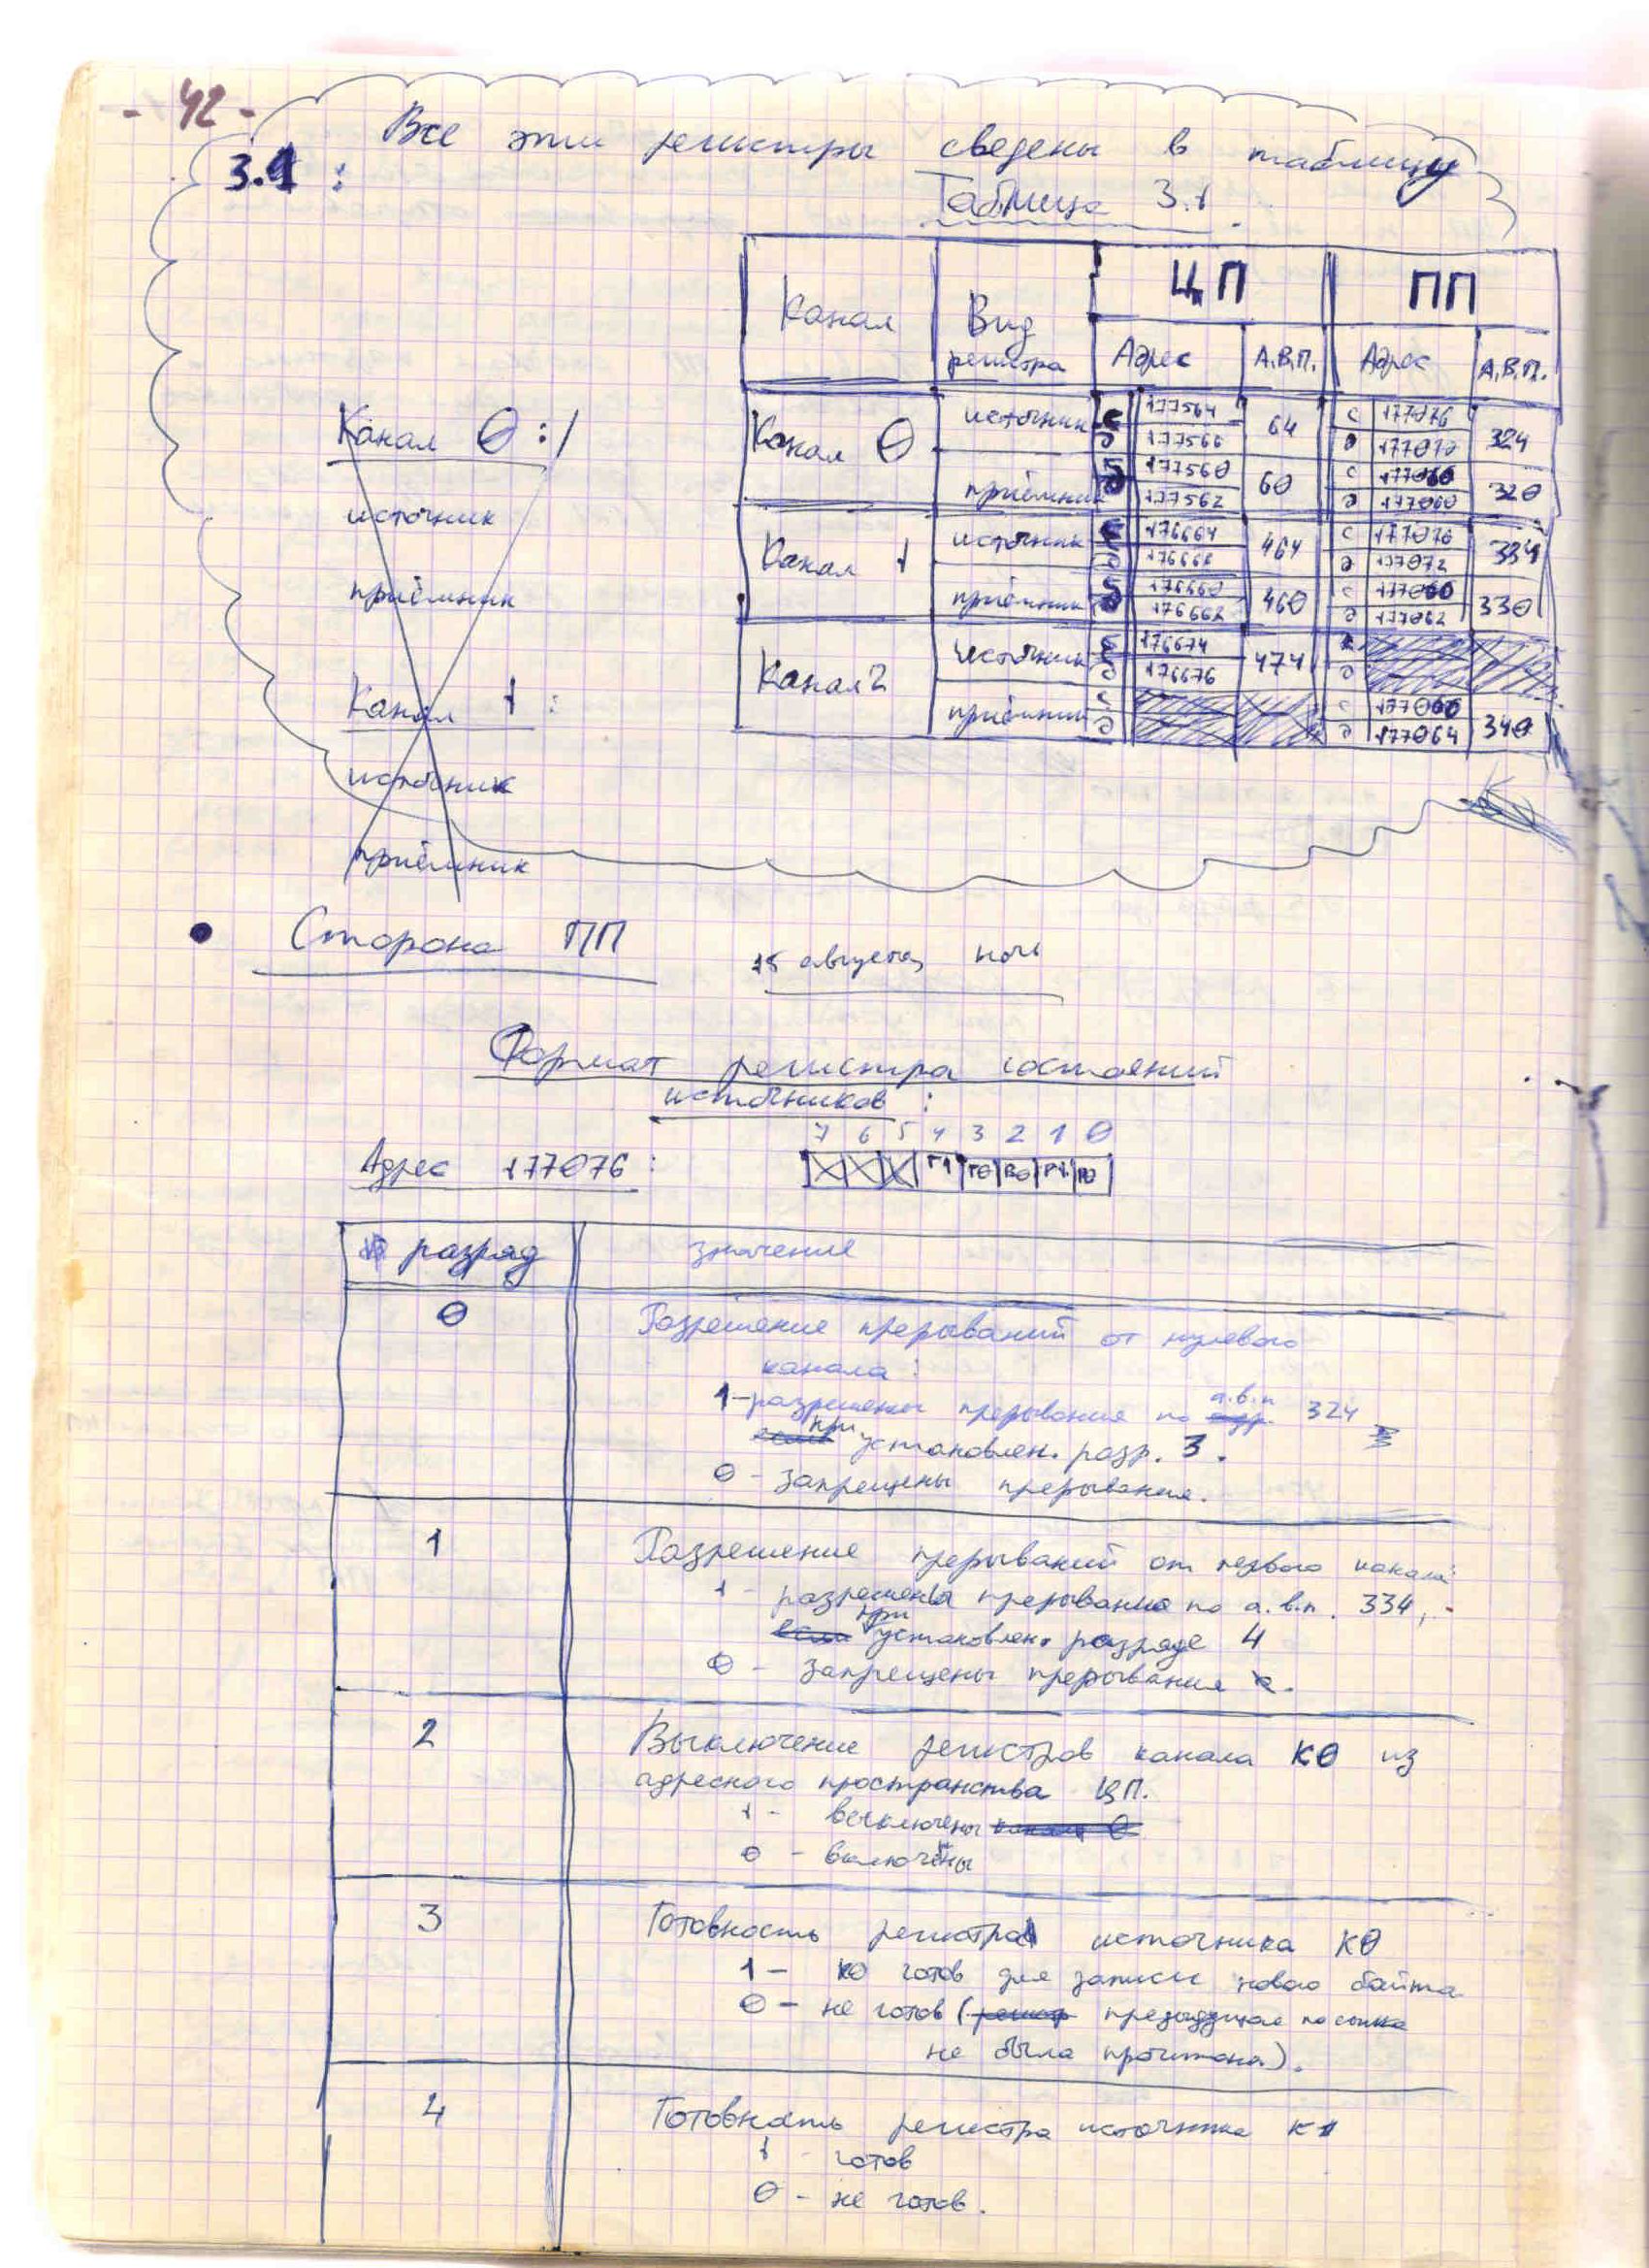 - 42 -
Все эти регистры сведены в таблицу
3.1 :
Таблица 3.1
Канал Вид регистра ЦП ПП
Адрес А.В.П. Адрес А.В.П.
Канал 0 источник с 177564 64 с 177076 324
д 177566 д 177070
приёмник с 177560 60 с 177066 320
д 177562 д 177060
Канал 1 источник с 176664 464 с 177076 334
д 176666 д 177072
приёмник с 176660 460 с 177066 330
д 176662 д 177062
Канал 2 источник с 176674 474
д 176676 д
приёмник с с 177066 340
д д 177064
Канал 0 :
источник
приёмник
Канал 1 :
источник
приёмник
• Сторона ПП
15 августа, ночь
Формат регистра состояний
источников :
7 6 5 4 3 2 1 0
Адрес 177076 :
Г1 Г0 В0 Р1 Р0
разряд значение
0 Разрешение прерываний от нулевого
канала :
1 - разрешены прерывания по а.в.п 324
при установлен. разр. 3 .
0 - запрещены прерывания.
1 Разрешение прерываний от первого канала:
1 - разрешены прерывания по а.в.п. 334,
при установлен. разряде 4
0 - запрещены прерывания .
2 Выключение регистров канала К0 из
адресного пространства ЦП.
1 - выключены канал 0
0 - включены
3 Готовность регистра источника К0
1 - К0 готов для записи нового байта
0 - не готов (регистр предыдущая посылка
не была прочитана).
4 Готовность регистра источника К1
1 - готов
0 - не готов.